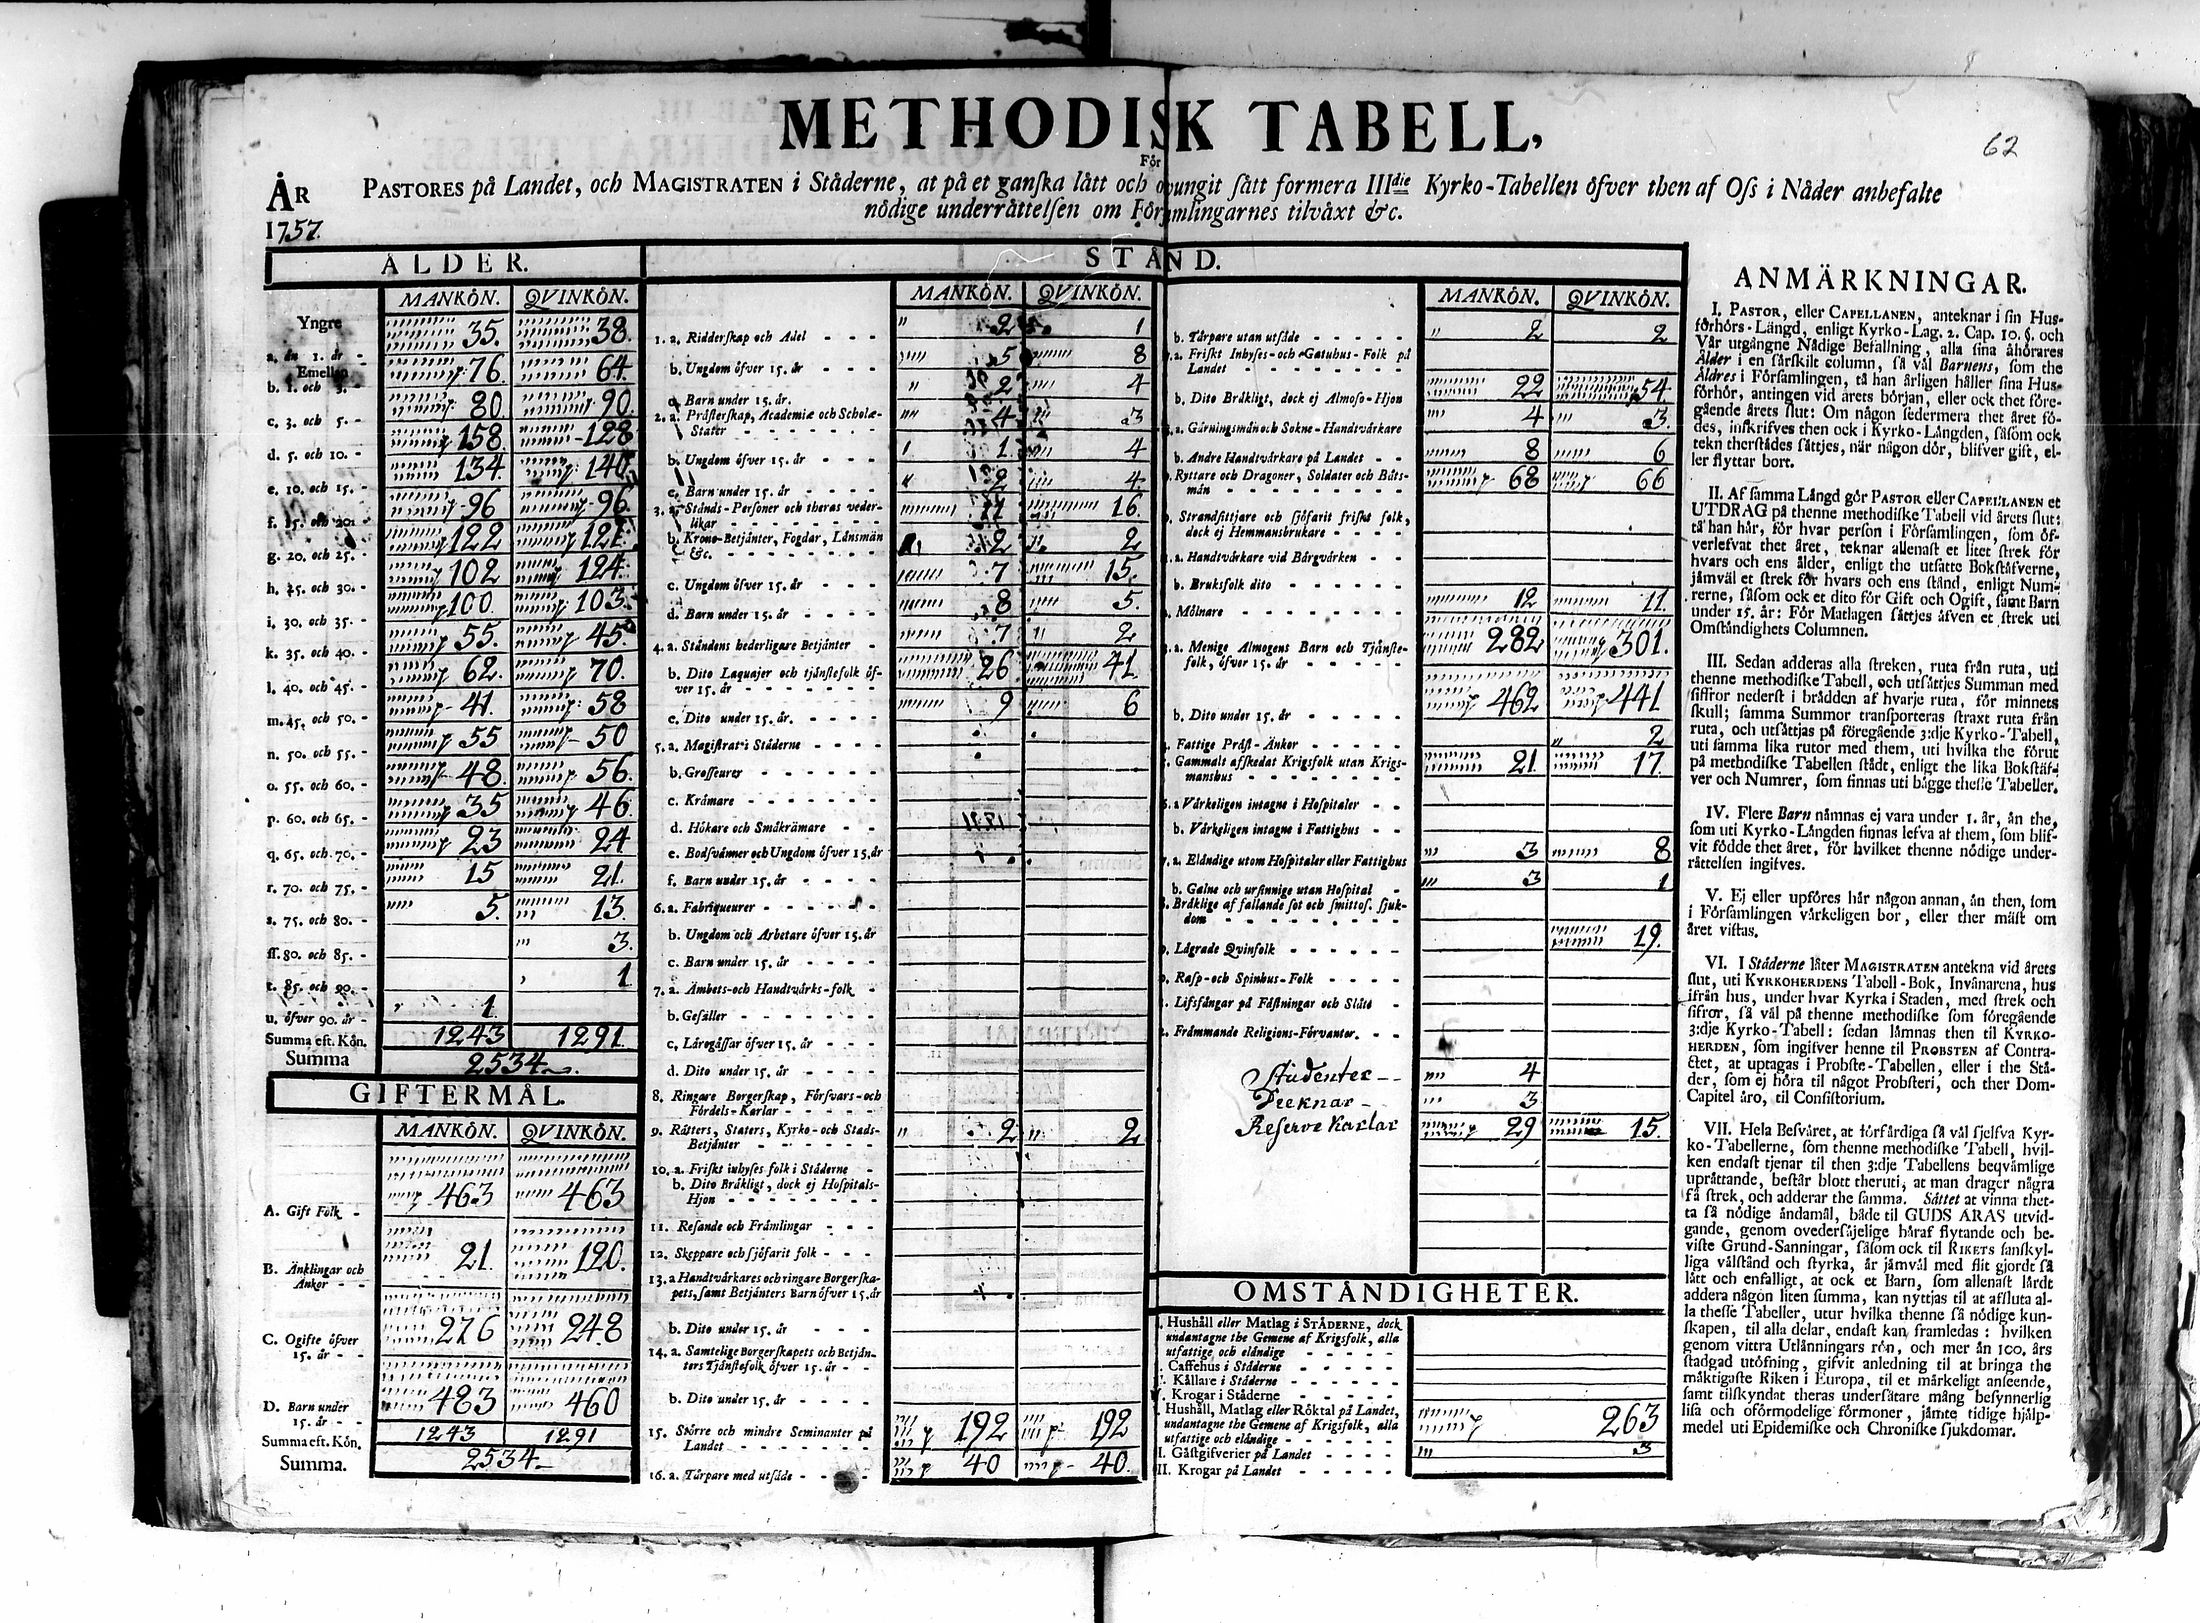 METHODISK TABELL,
62
För
ÅR
1757.
PASTORES på Landet, och MAGISTRATEN i Städerne, at på et ganska lätt och otvungit sätt formera IIIdie Kyrko-Tabellen öfver then af Oss i Nåder anbefalte
nödige underrättelsen om Församlingarnes tilväxt &c.
ÅLDER.
MANKÖN. QVINKÖN.
Yngre
a. än 1. år - 35. 38.
Emellan
b. 1. och 3. - 76. 64.
c. 3. och 5. - 80. 90.
d. 5. och 10. - 158. 128
e. 10. och 15. - 134. 140.
f. 15. och 20. - 96 96.
g. 20. och 25. - 122 121.
h. 25. och 30. - 102 124.
i. 30. och 35. - 100. 103.
k. 35. och 40. - 55. 45.
l. 40. och 45. - 62. 70.
m. 45. och 50. - 41. 58
n. 50. och 55. - 55 50
o. 55. och 60. - 48. 56.
p. 60. och 65. - 35 46
q. 65. och 70. - 23 24
r. 70. och 75. - 15 21.
s. 75. och 80. - 5. 13.
ss. 80. och 85. - 3.
t. 85. och 90. - 1
u. öfver 90. år - 1.
Summa eft. Kön. 1243 1291.
Summa 2534.
GIFTERMÅL.
MANKÖN. QVINKÖN.
A. Gift Folk - 463 463
B. Änklingar och
Änkor - - 21. 120.
C. Ogifte öfver
15. år - - 276 248
D. Barn under
15. år - - 483 460
Summa eft. Kön. 1243 1291
Summa. 2534
STÅND.
MANKÖN. QVINKÖN.
1. a. Ridderskap och Adel - - - - 2 1
b. Ungdom öfver 15. år - - - - 5 8
c. Barn under 15. år. 2 4
2. a. Prästerskap, Academiæ och Scholæ-
Stater - - - - - - - 4 3
b. Ungdom öfver 15. år - - - - 1. 4
c. Barn under 15. år - - - - 2 4
3. a. Stånds-Personer och theras veder-
likar - - - - - - - - 11 16.
b. Krono-Betjänter, Fogdar, Länsmän
&c. - - - - - - - - 2 2
c. Ungdom öfver 15. år - - - - 7 15.
d. Barn under 15. år - - - - 8 5.
4. a. Ståndens hederligare Betjänter - 7 2
b. Dito Laquajer och tjänstefolk öf-
ver 15. år - - - - - - - 26 41.
c. Dito under 15. år. - - - - 9 6
5. a. Magistrat i Städerne - - - -
b. Grosseurer - - - - - - -
c. Krämare - - - - - - -
d. Hökare och Småkrämare - -
e. Bodsvänner och Ungdom öfver 15. år
f. Barn under 15. år - - - -
6. a. Fabriqueurer - - - - - -
b. Ungdom och Arbetare öfver 15. år
c. Barn under 15. år - - - -
7. a. Ämbets-och Handtvärks-folk -
b. Gesäller - - - - - - -
c. Läregåssar öfver 15. år - - -
d. Dito under 15. år - - - -
8. Ringare Borgerskap, Försvars-och
Fördels-Karlar - - - - -
9. Rätters, Staters, Kyrko-och Stads-
Betjänter - - - - - - - 2 2
10. a. Friskt inhyses folk i Städerne -
b. Dito Bräkligt, dock ej Hospitals-
Hjon - - - - - - - -
11. Resande och Främlingar - - -
12. Skeppare och sjöfarit folk - - -
13. a Handtvärkares och ringare Borgerska-
pets, samt Betjänters Barn öfver 15. år
b. Dito under 15. år - - - -
14. a. Samtelige Borgerskapets och Betjän-
ters Tjänstefolk öfver 15. år - -
b. Dito under 15. år - - - -
15. Större och mindre Seminanter på
Landet - - - - - - - 192 192
16. a. Torpare med utsäde - - - - 40 40.
MANKÖN. QVINKÖN.
b. Torpare utan utsäde - - - - - 2 2
a. Friskt Inhyses-och Gatuhus-Folk på
Landet - - - - - - - - 22 54.
b. Dito Bräkligt, dock ej Almoso-Hjon 4 3.
a. Gärningsmän och Sokne-Handtvärkare 8 6
b. Andre Handtvärkare på Landet - -
Ryttare och Dragoner, Soldater och Båts-
män - - - - - - - - 68 66
Strandsittjare och sjöfarit friskt folk,
dock ej Hemmansbrukare - - -
a. Handtvärkare vid Bärgvärken - - -
b. Bruksfolk dito - - - - - -
Mölnare - - - - - - - - 12 11
a. Menige Almogens Barn och Tjänste-
folk, öfver 15. år - - - - - 282 301.
b. Dito under 15. år - - - - - 462 441
Fattige Präst-Änkor - - - - - 2
Gammalt afskedat Krigsfolk utan Krigs-
manshus - - - - - - - 21. 17.
a Värkeligen intagne i Hospitaler - -
b. Värkeligen intagne i Fattighus - -
a. Eländige utom Hospitaler eller Fattighus 3 8
b. Galne och ursinnige utan Hospital - 3 1
Bräklige af fallande sot och smittos. sjuk-
dom - - - - - - - -
Lägrade Qvinfolk - - - - - - 19.
Rasp-och Spinhus-Folk - - - -
Lifsfångar på Fästningar och Slått -
Främmande Religions-Förvanter. - -
Studenter - - 4
Dreknar - 3.
Reserve Karlar 29 15.
OMSTÄNDIGHETER.
Hushåll eller Matlag i STÄDERNE, dock
undantagne the Gemene af Krigsfolk, alla
utfattige och eländige - - - - -
Caffehus i Städerne - - - - - -
Källare i Städerne - - - - - -
Krogar i Städerne - - - - - -
Hushåll, Matlag eller Röktal på Landet,
undantagne the Gemene af Krigsfolk, alla
utfattige och eländige - - - - - 263
I. Gästgifverier på Landet - - - - 3
II. Krogar på Landet - - - - -
ANMÄRKNINGAR.
I. PASTOR, eller CAPELLANEN, anteknar i sin Hus-
förhörs-Längd, enligt Kyrko-Lag. 2. Cap. 10. §. och
Vår utgångne Nådige Befallning, alla sina åhörares
Ålder i en särskilt column, så väl Barnens, som the
Äldres i Församlingen, tå han årligen håller sina Hus-
förhör, antingen vid årets början, eller ock thet före-
gående årets slut: Om någon sedermera thet året fö-
des, inskrifves then ock i Kyrko-Längden, såsom ock
tekn therstädes sättjes, når någon dör, blifver gift, el-
ler flyttar bort.
II. Af samma Längd gör PASTOR eller CAPELLANEN et
UTDRAG på thenne methodiske Tabell vid årets slut:
tå han här, för hvar person i Församlingen, som öf-
verlefvat thet året, teknar allenast et litet strek för
hvars och ens ålder, enligt the utsatte Bokstäfverne,
jämväl et strek för hvars och ens stånd, enligt Num-
rerne, såsom ock et dito för Gift och Ogift, samt Barn
under 15. år: För Matlagen sättjes äfven et strek uti
Omständighets Columnen.
III. Sedan adderas alla streken, ruta från ruta, uti
thenne methodiske Tabell, och utsättjes Summan med
siffror nederst i brädden af hvarje ruta, för minnets
skull; samma Summor transporteras straxt ruta från
ruta, och utsättjas på föregående 3:dje Kyrko-Tabell,
uti samma lika rutor med them, uti hvilka the förut
på methodiske Tabellen städt, enligt the lika Bokstäf-
ver och Numrer, som finnas uti bägge thesse Tabeller.
IV. Flere Barn nämnas ej vara under 1. år, än the,
som uti Kyrko-Längden finnas lefva af them, som blif-
vit födde thet året, för hvilket thenne nödige under-
rättelsen ingifves.
V. Ej eller upföres här någon annan, än then, som
i Församlingen värkeligen bor, eller ther mäst om
året vistas.
VI. I Städerne låter MAGISTRATEN antekna vid årets
slut, uti KYRKOHERDENS Tabell-Bok, Invånarena, hus
ifrån hus, under hvar Kyrka i Staden, med strek och
siffror, så väl på thenne methodiske som föregående
3:dje Kyrko-Tabell: sedan lämnas then til KYRKO-
HERDEN, som ingifver henne til PROBSTEN af Contra-
ctet, at uptagas i Probste-Tabellen, eller i the Stä-
der, som ej höra til något Probsteri, och ther Dom-
Capitel äro, til Consistorium.
VII. Hela Besväret, at förfärdiga så väl sjelfva Kyr-
ko-Tabellerne, som thenne methodiske Tabell, hvil-
ken endast tjenar til then 3:dje Tabellens beqvämlige
uprättande, består blott theruti, at man drager några
få strek, och adderar the samma. Sättet at vinna thet-
ta så nödige ändamål, både til GUDS ÄRAS utvid-
gande, genom ovedersäjelige häraf flytande och be-
viste Grund-Sanningar, såsom ock til RIKETS sanskyl-
liga välstånd och styrka, är jämväl med flit gjordt så
lätt och enfalligt, at ock et Barn, som allenast lärdt
addera någon liten summa, kan nyttjas til at afsluta al-
la thesse Tabeller, utur hvilka thenne så nödige kun-
skapen, til alla delar, endast kan framledas: hvilken
genom vittra Utlänningars rön, och mer än 100. års
stadgad utöfning, gifvit anledning til at bringa the
mäktigaste Riken i Europa, til et märkeligt anseende,
samt tilskyndat theras undersåtare mång besynnerlig
lisa och oförmodelige förmoner, jämte tidige hjälp-
medel uti Epidemiske och Chroniske sjukdomar.